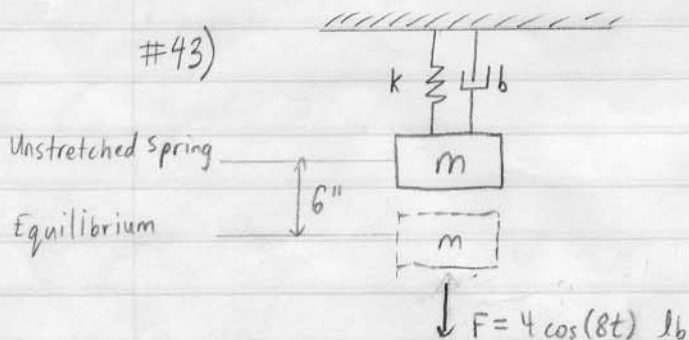 #43)
k
b
Unstretched Spring
m
6"
Equilibrium
m
F = 4 cos(8t) lb